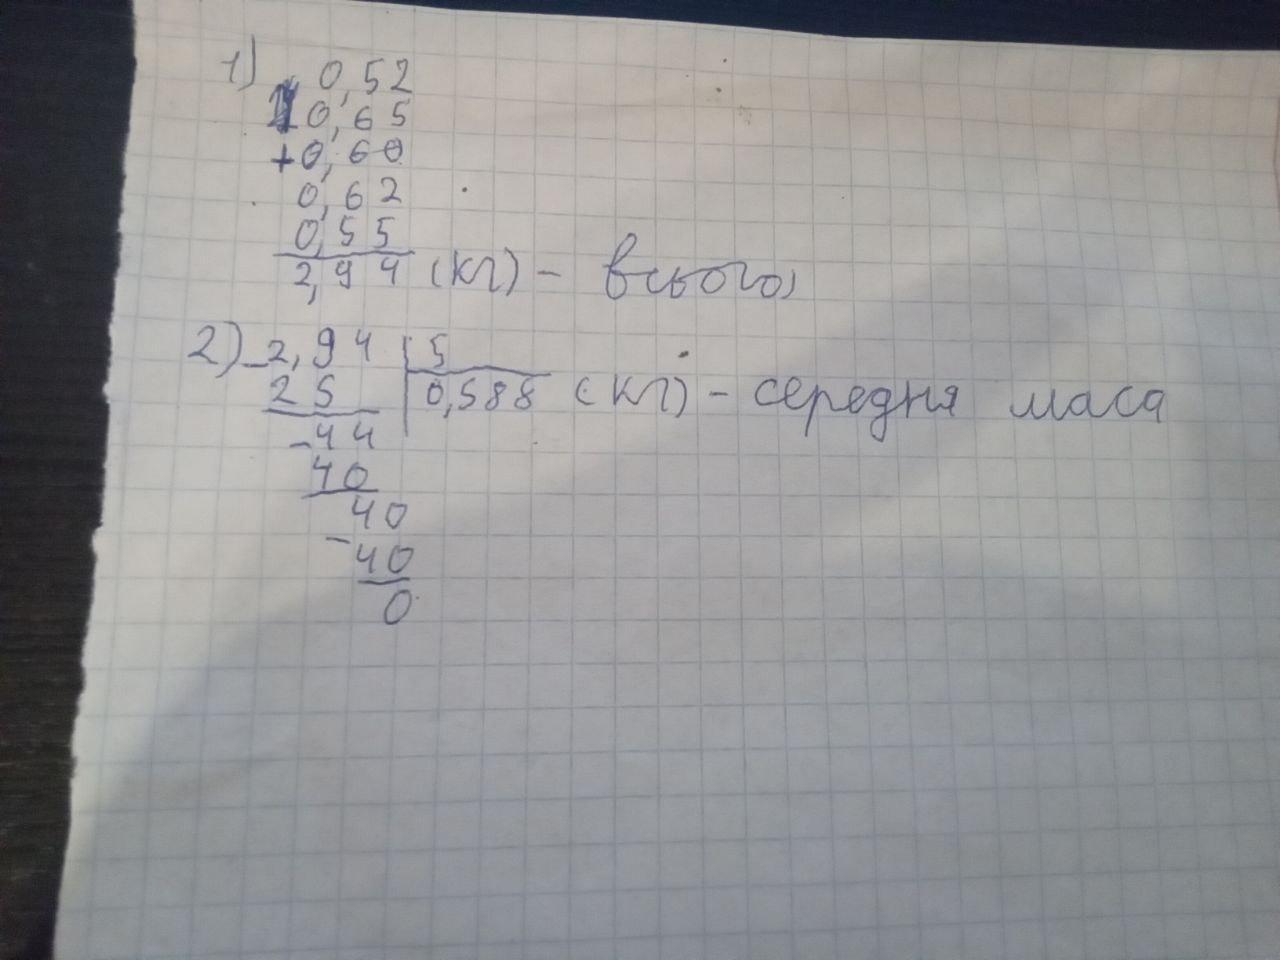 1) 0,52
0,65
+0,60
0,62
0,55
2,94 (кг) - всього,
2) -2,94 | 5
25 | 0,588 (кг) - середня маса
-44
40
40
-40
0